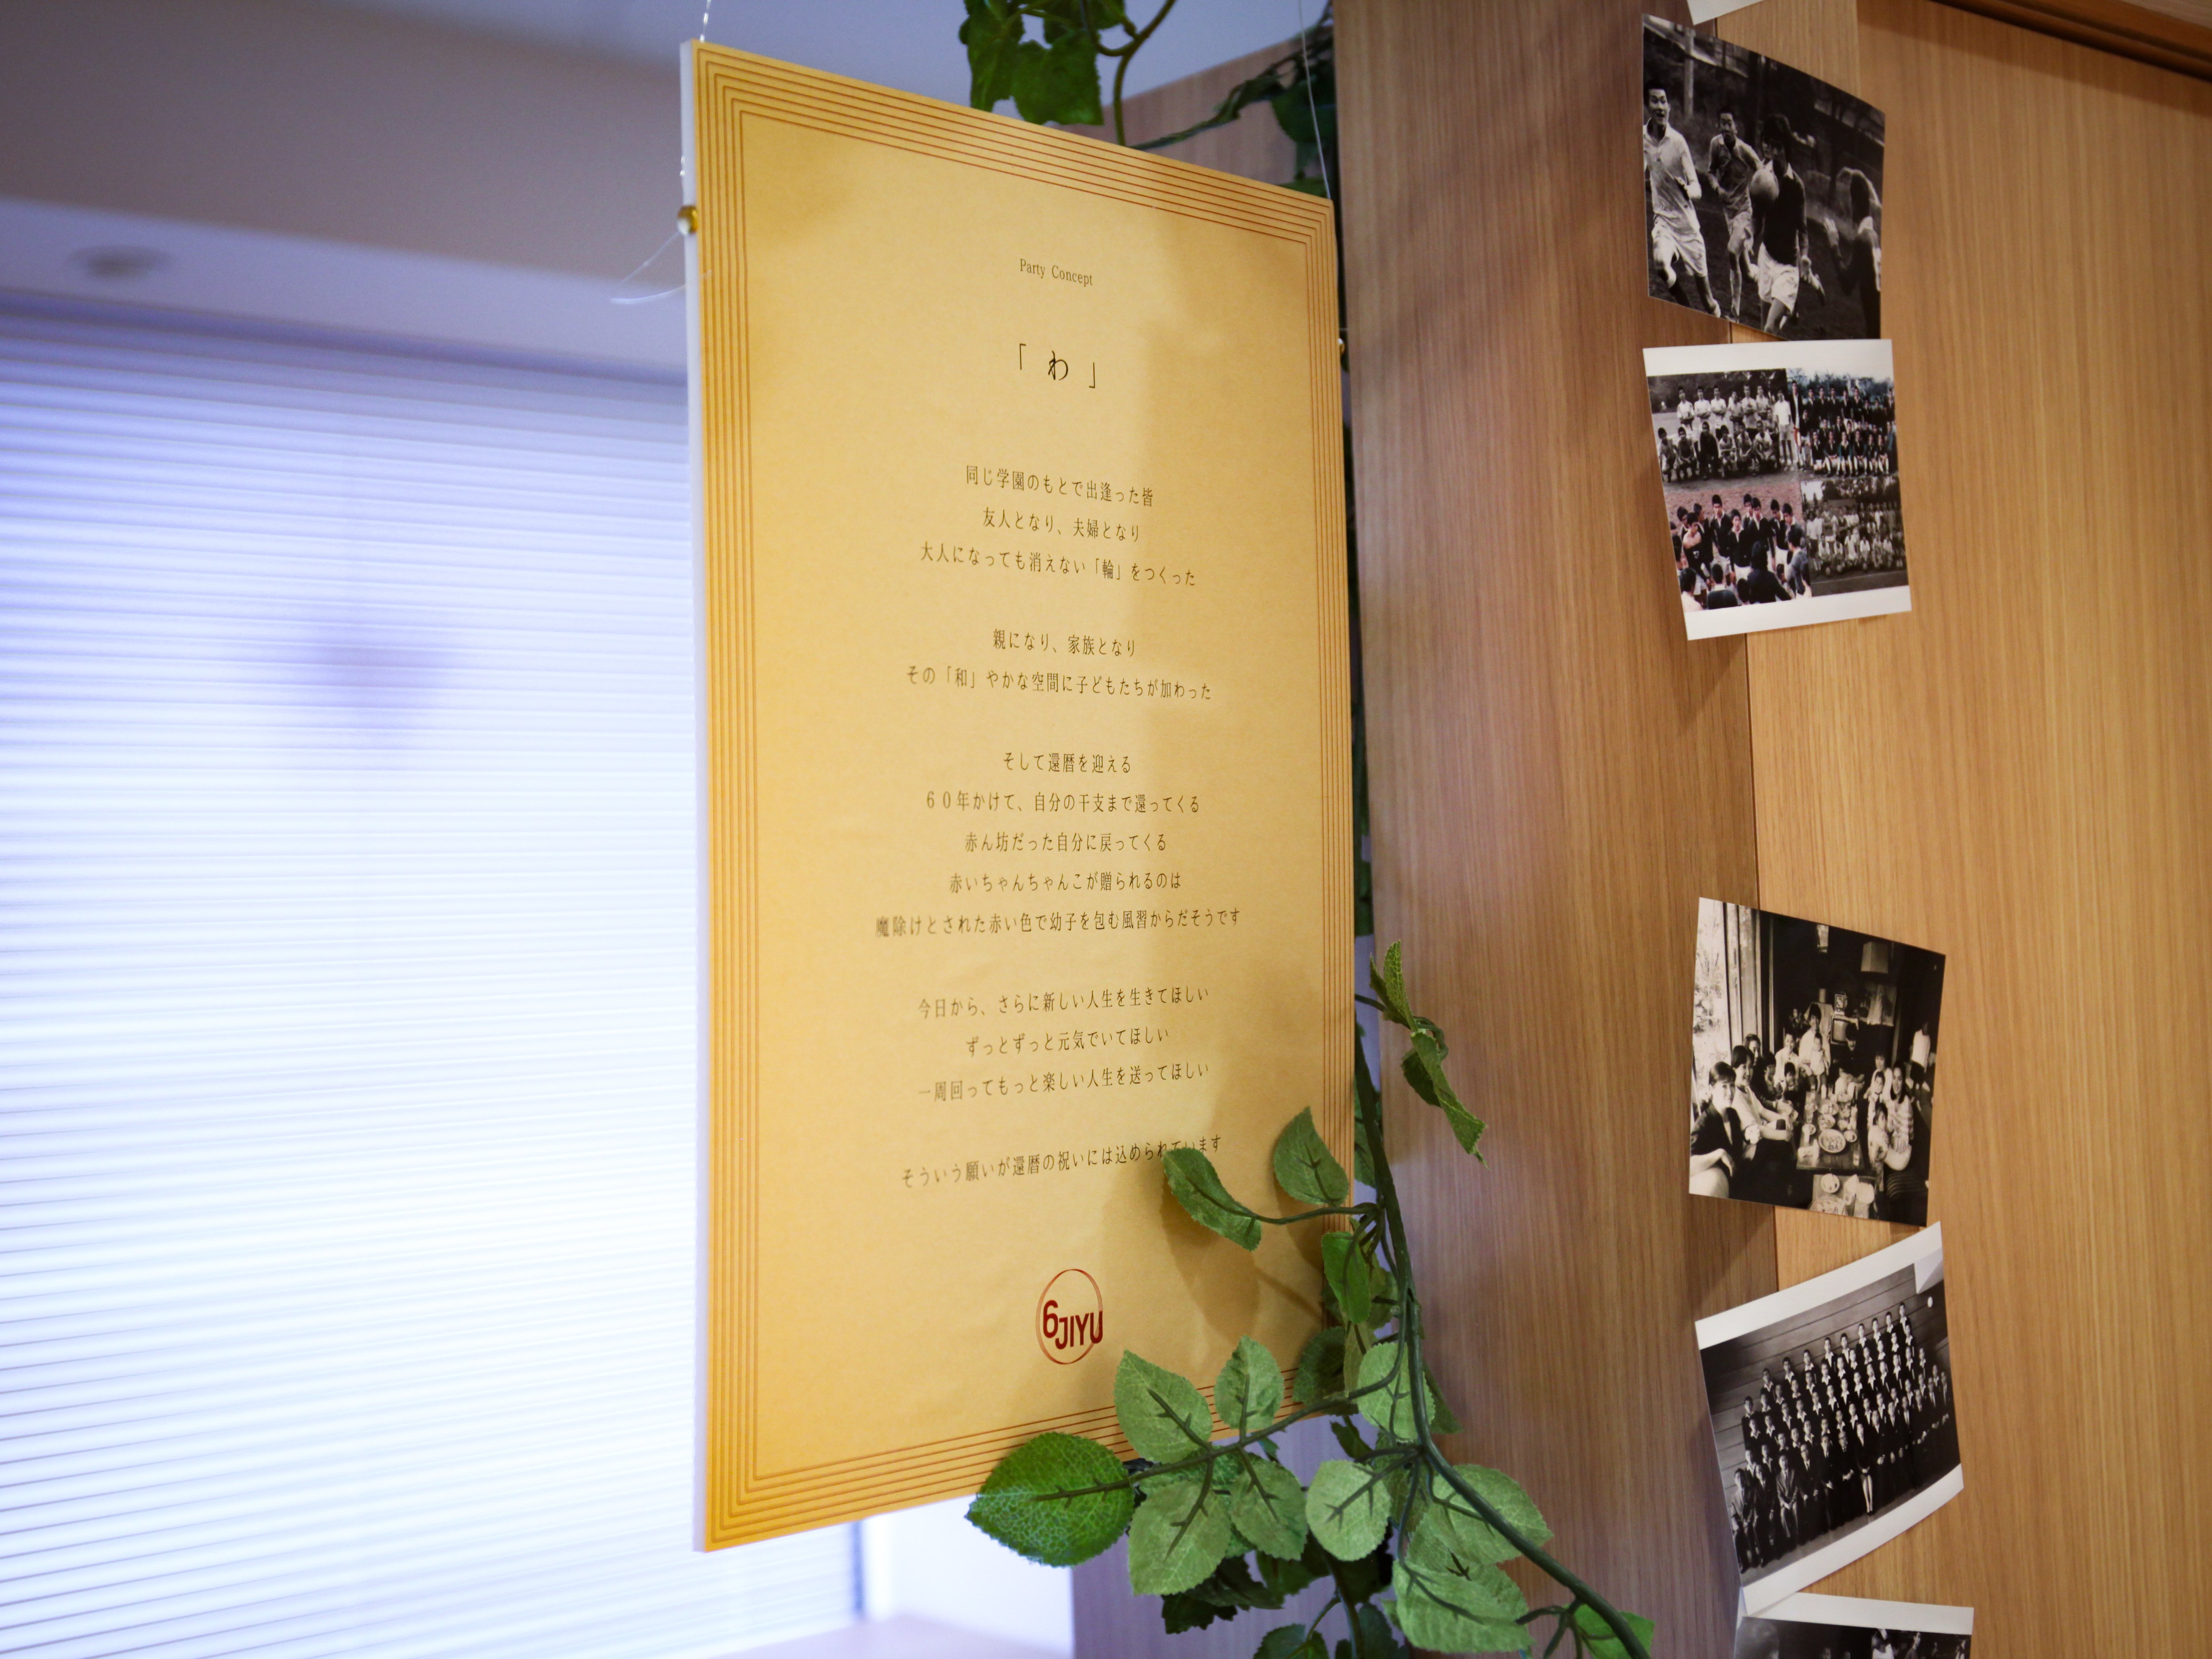 Party Concept
「わ」
同じ学園のもとで出逢った皆
友人となり、夫婦となり
大人になっても消えない「輪」をつくった
親になり、家族となり
その「和」やかな空間に子どもたちが加わった
そして還暦を迎える
60年かけて、自分の干支まで還ってくる
赤ん坊だった自分に戻ってくる
赤いちゃんちゃんこが贈られるのは
魔除けとされた赤い色で幼子を包む風習からだそうです
今日から、さらに新しい人生を生きてほしい
ずっとずっと元気でいてほしい
一周回ってもっと楽しい人生を送ってほしい
そういう願いが還暦の祝いには込められています
6JIYU